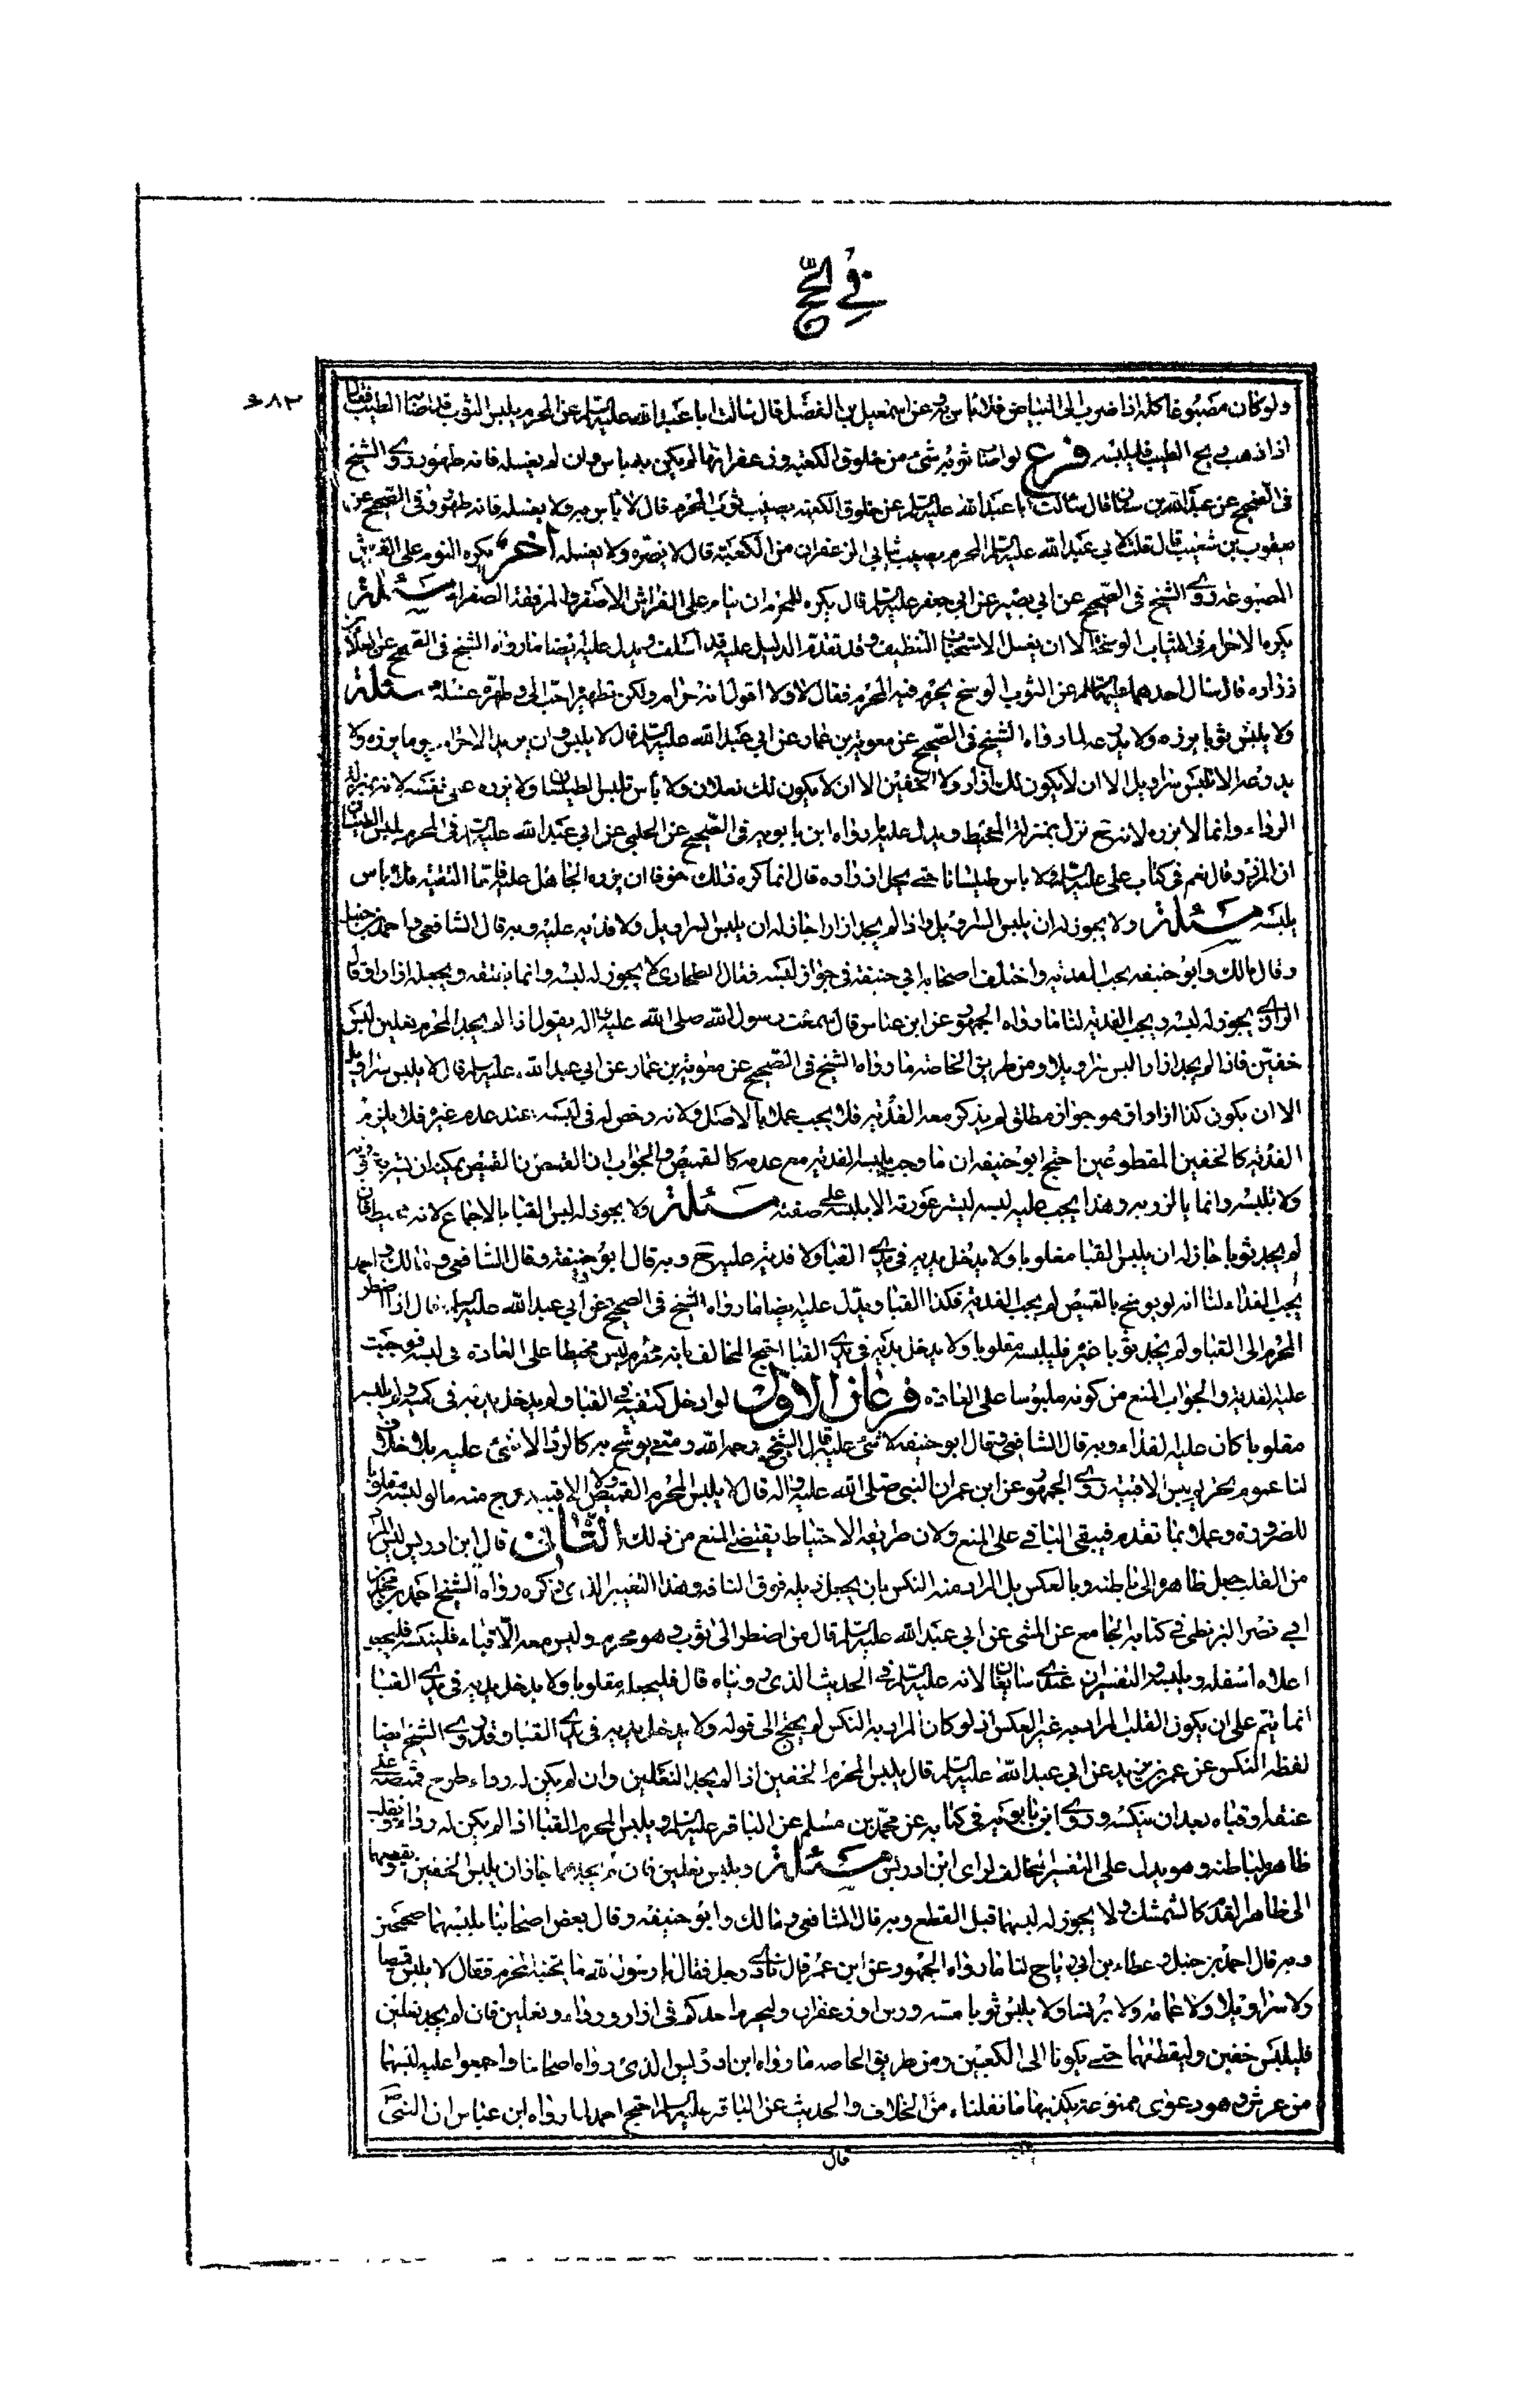 في الحج
٦٨٢
ولو كان مصبوغا كله اذا ضرب الى البياض فلا باس عن اسمعيل بن الفضل قال سالت ابا عبد الله عليه السلم عن المحرم يلبس الثوب قد اصابه الطيب فقال
اذا ذهب ريح الطيب فليلبسه فرع لو اصاب ثوبه شئ من خلوق الكعبة وزعفرانها لم يكن به باس وان لم يغسله فانه طهور روى الشيخ
في الصحيح عن عبد الله بن سنان قال سالت ابا عبد الله عليه السلم عن خلوق الكعبة يصيب ثوب المحرم قال لا باس به ولا يغسله فانه طهور وفي الصحيح عن
يعقوب بن شعيب قال قلت لابي عبد الله عليه السلم المحرم يصيب ثيابه الزعفران من الكعبة قال لا يضره ولا يغسله اخر يكره النوم على الفرش
المصبوغة روى الشيخ في الصحيح عن ابي بصير عن ابي جعفر عليه السلم قال يكره للمحرم ان ينام على الفراش الاصفر والمرفقة الصفراء مسئلة
يكره الاحرام في الثياب الوسخة الا ان يغسل لاستحباب التنظيف وقد تقدم الدليل عليه فيما سلف ويدل عليه ايضا ما رواه الشيخ في الصحيح عن العلا بن
زرارة قال سال احدهما عليهما السلم عن الثوب الوسخ يحرم فيه المحرم فقال لا ولا اقول انه حرام ولكن تطهيره احب الى وطهره غسله مسئلة
ولا يلبس ثوبا يزره ولا يدرعه لما رواه الشيخ في الصحيح عن معوية بن عمار عن ابي عبد الله عليه السلم قال لا يلبس وان يريد الاحرام ثوبا يزره ولا
يدرعه ولا تلبس سراويل الا ان لا يكون لك ازار ولا الخفين الا ان لا يكون لك نعلان ولا بأس بلبس الطيلسان ولا يزره على نفسه لانه بمنزلة
الرداء وانما لا يزره لانه ح نزل بمنزلة المخيط ويدل عليه ما رواه ابن بابويه في الصحيح عن الحلبي عن ابي عبد الله عليه السلم في المحرم يلبس الطيلسان
المزرر قال نعم في كتاب علي عليه السلم لا يلبس طيلسانا حتى يحل ازراره قال انما كره ذلك خوفا ان يزره الجاهل عليه فاما الفقيه فلا باس
يلبسه مسئلة ولا يجوز له ان يلبس السراويل واذا لم يجد ازارا جاز له ان يلبس السراويل ولا فدية عليه وبه قال الشافعي واحمد بن حنبل
وقال مالك وابو حنيفه يجب الفدية واختلف اصحاب ابي حنيفة في جواز لبسه فقال الطحاوي لا يجوز له لبسه وانما يفتقه ويجعله ازارا وقال
الرازي يجوز له لبسه ويجب الفدية لنا ما رواه الجمهور عن ابن عباس قال سمعت رسول الله صلى الله عليه واله يقول اذا لم يجد المحرم نعلين لبس
خفين فاذا لم يجد ازارا لبس سراويلا ومن طريق الخاصة ما رواه الشيخ في الصحيح عن معوية بن عمار عن ابي عبد الله عليه السلم قال لا يلبس سراويل
الا ان يكون لك ازار وهو جواز مطلق لم يذكر معه الفدية فلا يجب عملا بالاصل ولانه رخص له في لبسه عند عدم غيره فلا يلزم
الفدية كالخفين المقطوعين احتج ابو حنيفه ان ما وجب بلبسه الفدية مع عدمه كالقميص والجواب ان القميص يمكنه ان
ولا يلبسه وانما يالزر به وهذا يجب عليه لبسه ليستر عورته الا بلبسه على صفته مسئلة ولا يجوز له لبس القبا بالاجماع لانه مخيط فان
لم يجد ثوبا جاز له ان يلبس القبا مقلوبا ولا يدخل يديه في يدي القبا ولا فدية عليه ح وبه قال ابو حنيفة وقال الشافعي ومالك واحمد
يجب الفداء لنا انه لو توشح بالقميص لم يجب الفدية فكذا القبا ويدل عليه ايضا ما رواه الشيخ في الصحيح عن ابي عبد الله عليه السلم قال اذا اضطر
المحرم الى القبا ولم يجد ثوبا غيره فليلبسه مقلوبا ولا يدخل يديه في يدي القبا احتج المخالف بانه محرم لبس مخيطا على العادة في لبسه فوجبت
عليه الفدية والجواب المنع من كونه ملبوسا على العادة فرعان الاول لو ادخل كتفيه في القبا ولم يدخل يديه في كميه ولم يلبسه
مقلوبا كان عليه الفداء وبه قال الشافعي وقال ابو حنيفة لا شئ عليه قال الشيخ رحمه الله ومتى توشح به كالرداء لا شئ عليه بلا خلاف
لنا عموم تحريم لبس الاقبية روى الجمهور عن ابن عمر ان النبي صلى الله عليه واله قال لا يلبس المحرم القميص ولا الاقبية خرج منه ما لو لبسه مقلوبا
للضرورة وعملا بما تقدم فيبقى الباقي على المنع ولان طريقة الاحتياط يقتضي المنع من ذلك الثاني قال ابن ادريس ليس المراد
من القلب جعل ظاهره الى باطنه وبالعكس بل المراد منه النكس بان يجعل ذيله فوق اكتافه وهذا التفسير الذي ذكره رواه الشيخ احمد بن محمد بن
ابي نصر البزنطي في كتابه الجامع عن المثنى عن ابي عبد الله عليه السلم قال من اضطر الى ثوب وهو محرم وليس معه الا قباء فلينكسه فليجعل
اعلاه اسفله ويلبسه والتفسيران عندي سايغان لانه عليه السلم في الحديث الذي رويناه قال فليجعله مقلوبا ولا يدخل يديه في يدي القبا
انما يتم على ان يكون القلب المراد به غير العكس اذ لو كان المراد به النكس لم يحتج الى قوله ولا يدخل يديه في يدي القبا وقد روى الشيخ ايضا
لفظة النكس عن عمر بن يزيد عن ابي عبد الله عليه السلم قال يلبس المحرم الخفين اذا لم يجد النعلين وان لم يكن له رداء طرح قميصه على
عنقه او قباه بعد ان ينكسه وروى ابن بابويه في كتابه عن محمد بن مسلم عن الباقر عليه السلم ويلبس المحرم القبا اذا لم يكن له رداء ويقلب
ظاهره لباطنه وهو يدل على التفسير المخالف لراى ابن ادريس مسئلة ويلبس نعلين فان لم يجدهما جاز ان يلبس الخفين ويقطعهما
الى ظاهر القدم كالشمشك ولا يجوز له لبسهما قبل القطع وبه قال الشافعي ومالك وابو حنيفه وقال بعض اصحابنا يلبسهما صحيحين
وبه قال احمد بن حنبل وعطاء بن ابي رباح لنا ما رواه الجمهور عن ابن عمر قال نادى رجل فقال يا رسول الله ما يجتنبه المحرم فقال لا يلبس قميصا
ولا سراويلا ولا عمامة ولا برنسا ولا يلبس ثوبا مسه ورس او زعفران وليحرم احدكم في ازار ورداء ونعلين فان لم يجد نعلين
فليلبس خفين وليقطعهما حتى يكونا الى الكعبين ومن طريق الخاصه ما رواه ابن ادريس الذي رواه اصحابنا واجمعوا عليه لبسهما
من غير شق وهو دعوى ممنوعة يكذبها ما نقلناه من الخلاف والحديث عن الباقر عليه السلم احتج احمد لما رواه ابن عباس ان النبي ص
قال